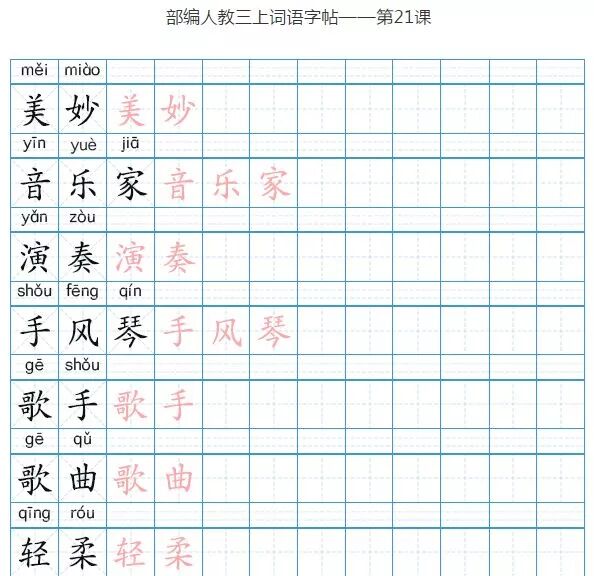 部编人教三上词语字帖——第21课
měi miào
美妙美妙
yīn yuè jiā
音乐家音乐家
yǎn zòu
演奏演奏
shǒu fēng qín
手风琴手风琴
gē shǒu
歌手歌手
gē qǔ
歌曲歌曲
qīng róu
轻柔轻柔